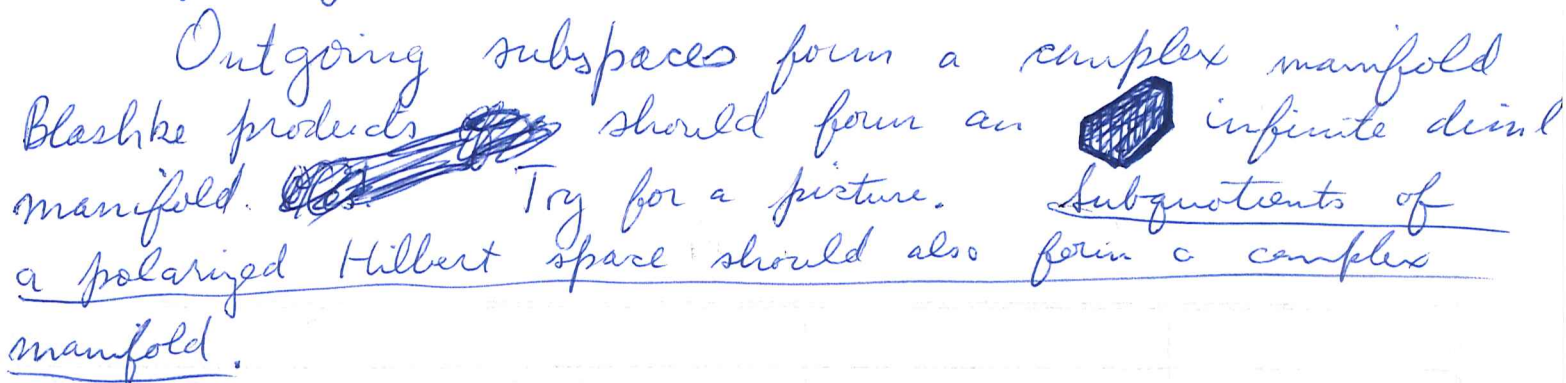 Outgoing subspaces form a complex manifold
Blashke products should form an infinite diml
manifold. Try for a picture. Subquotients of
a polarized Hilbert space should also form a complex
manifold.